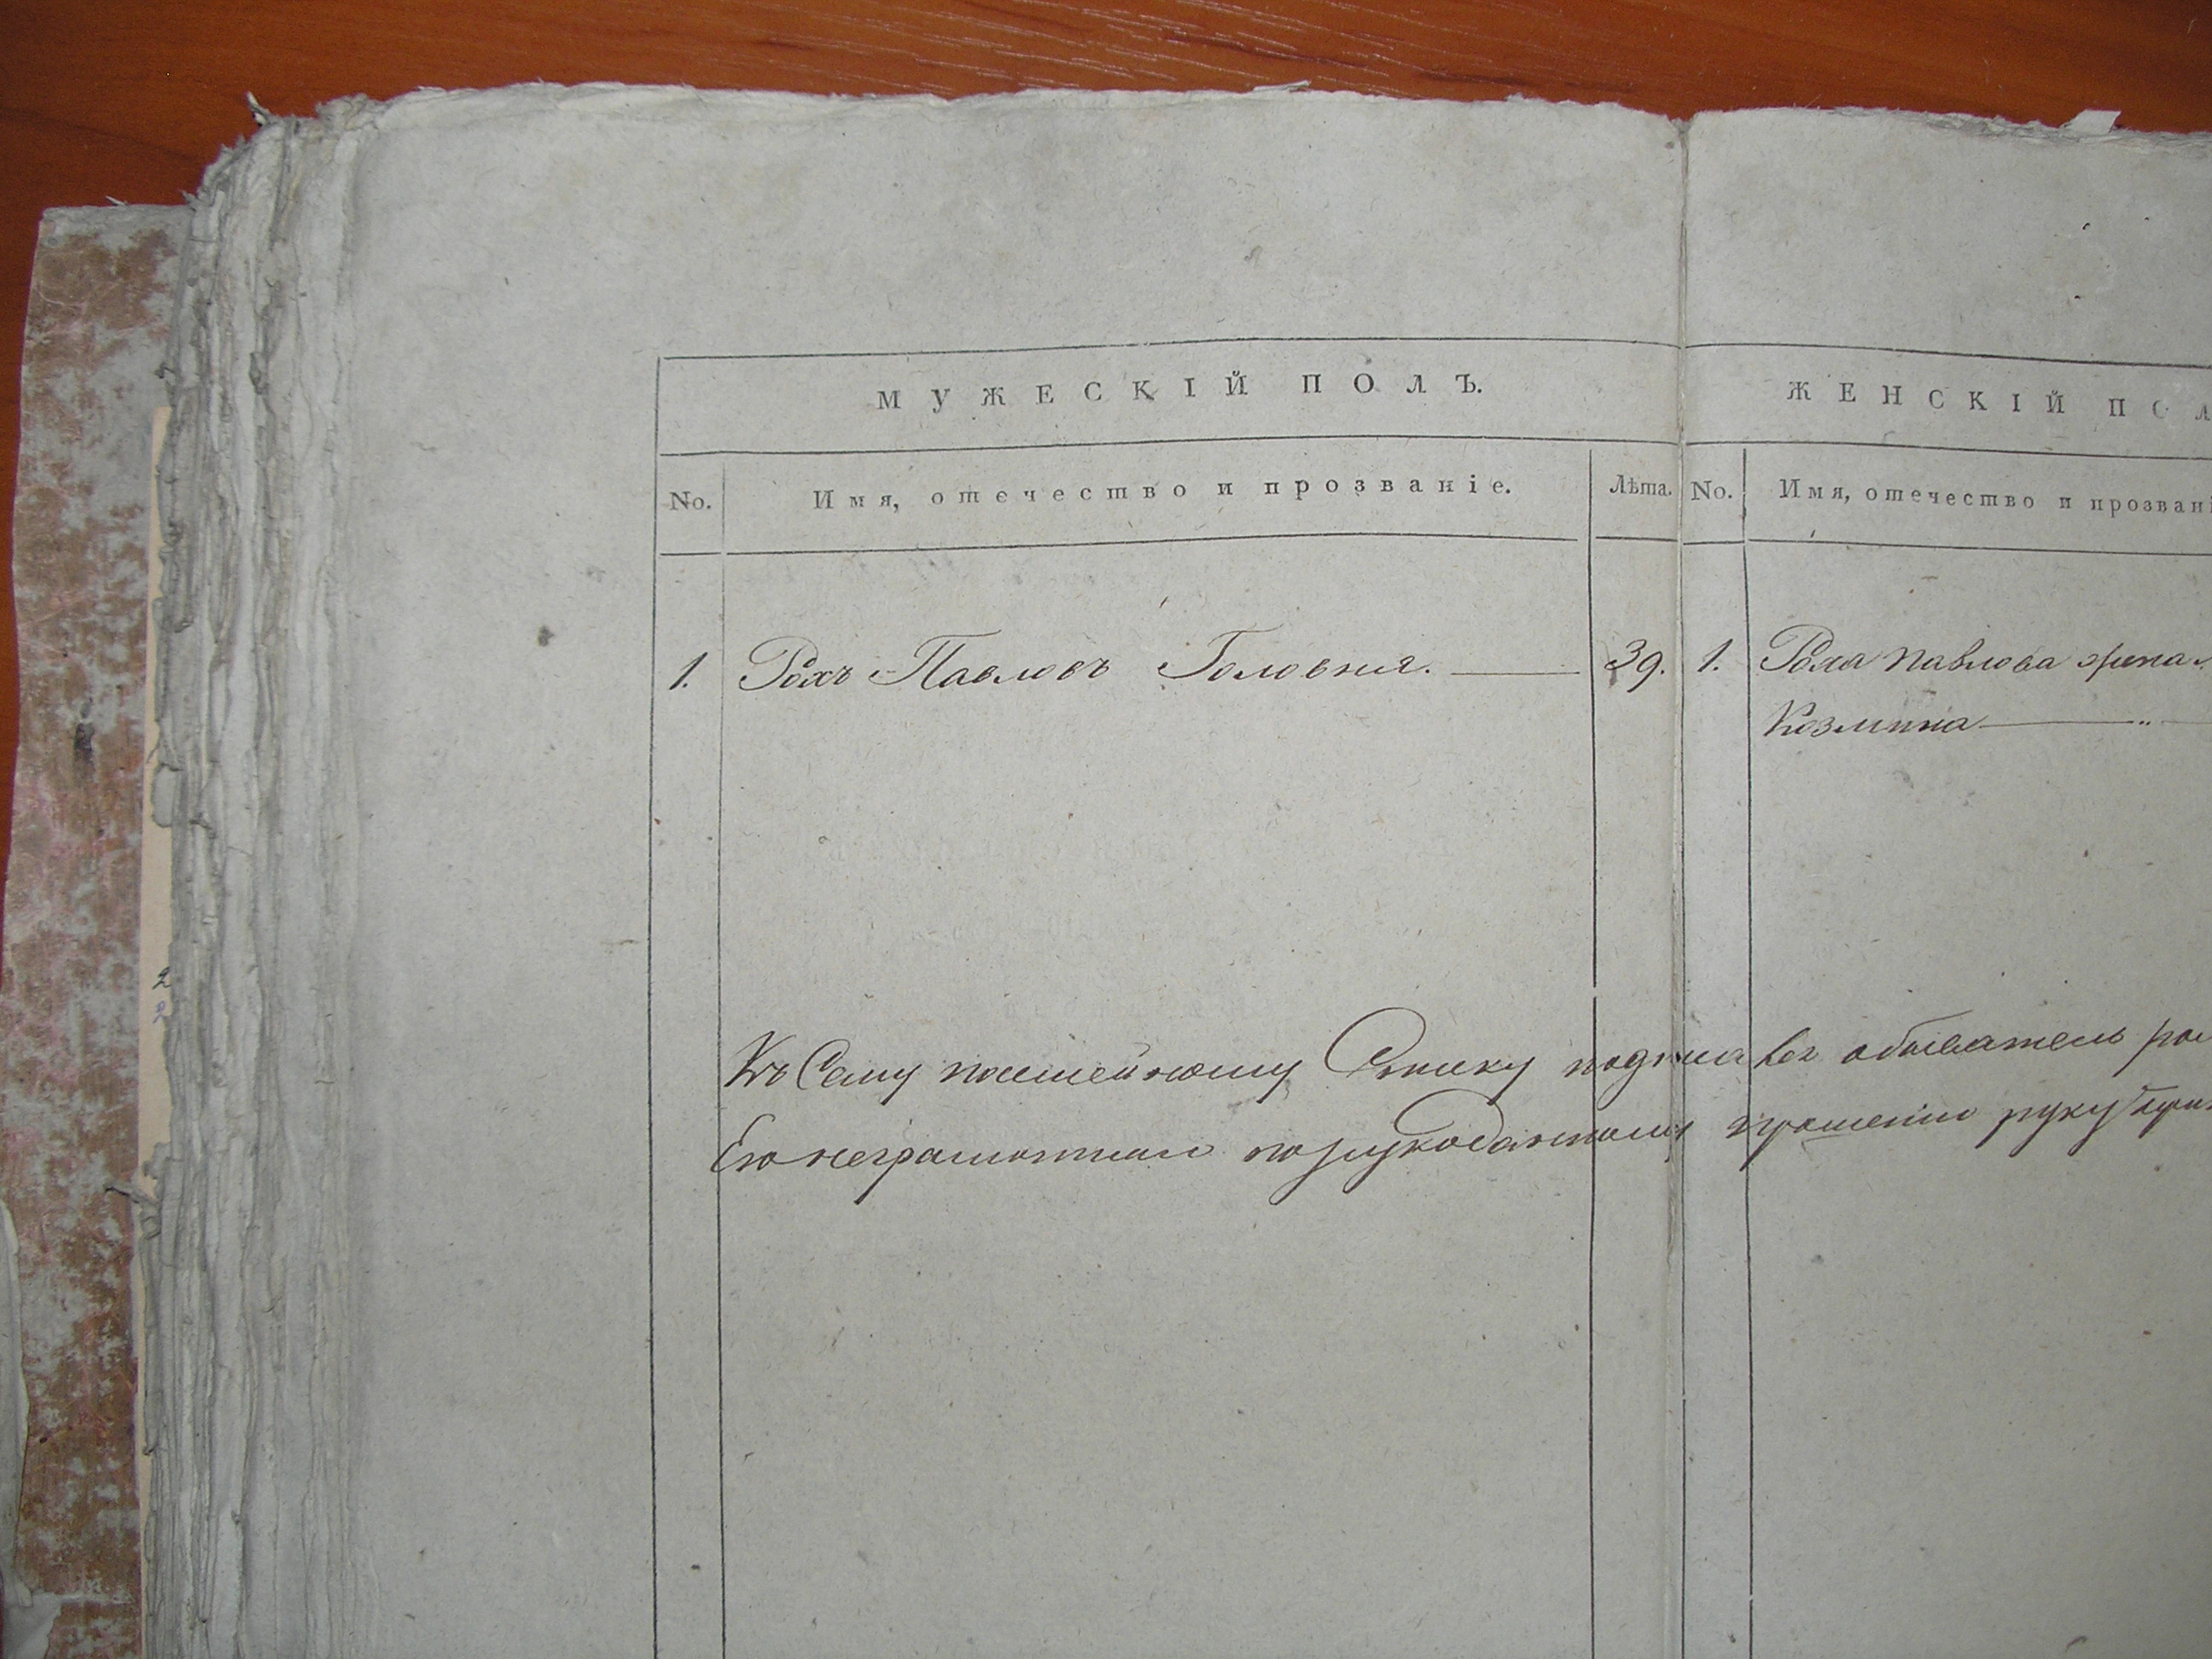 МУЖЕСКІЙ ПОЛЪ.
ЖЕНСКІЙ ПОЛ
No.
Имя, отечество и прозваніе.
Лѣта.
No.
Имя, отечество и прозвані
1. Рохъ Павловъ Головня.
39.
1. Роха Павлова жена
Козмина
Къ Сему посемейному Списку обыватель
Его неграмотнаго по рукоданному прошенію руку
2
2